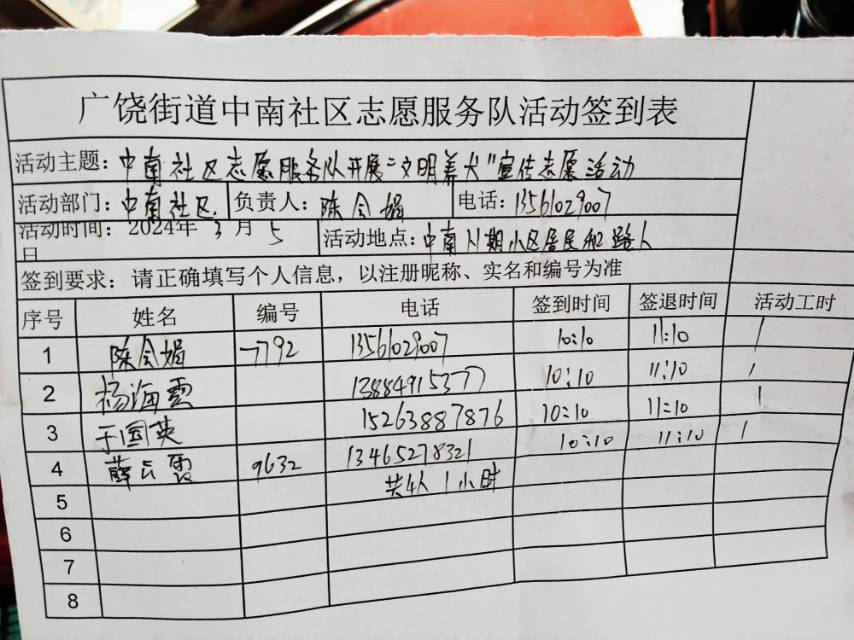 广饶街道中南社区志愿服务队活动签到表
活动主题：中南社区志愿服务队开展"文明养犬"宣传志愿活动
活动部门：中南社区 负责人：陈会娟 电话：13561029007
活动时间：2024年 3 月 5 日 活动地点：中南 期小区居民和路人
签到要求：请正确填写个人信息，以注册昵称、实名和编号为准
序号 姓名 编号 电话 签到时间 签退时间 活动工时
1 陈会娟 7792 13561029007 10:10 11:10 1
2 杨海云 13884915377 10:10 11:10 1
3 于国英 15263887876 10:10 11:10 1
4 薛云霞 9632 13465278321 10:10 11:10 1
5 共4人 1小时
6
7
8